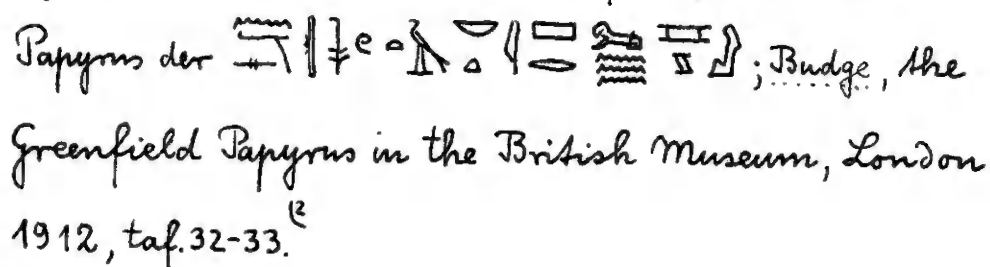 Papyrus der ; Budge, the
Greenfield Papyrus in the British Museum, London
1912, taf. 32-33.